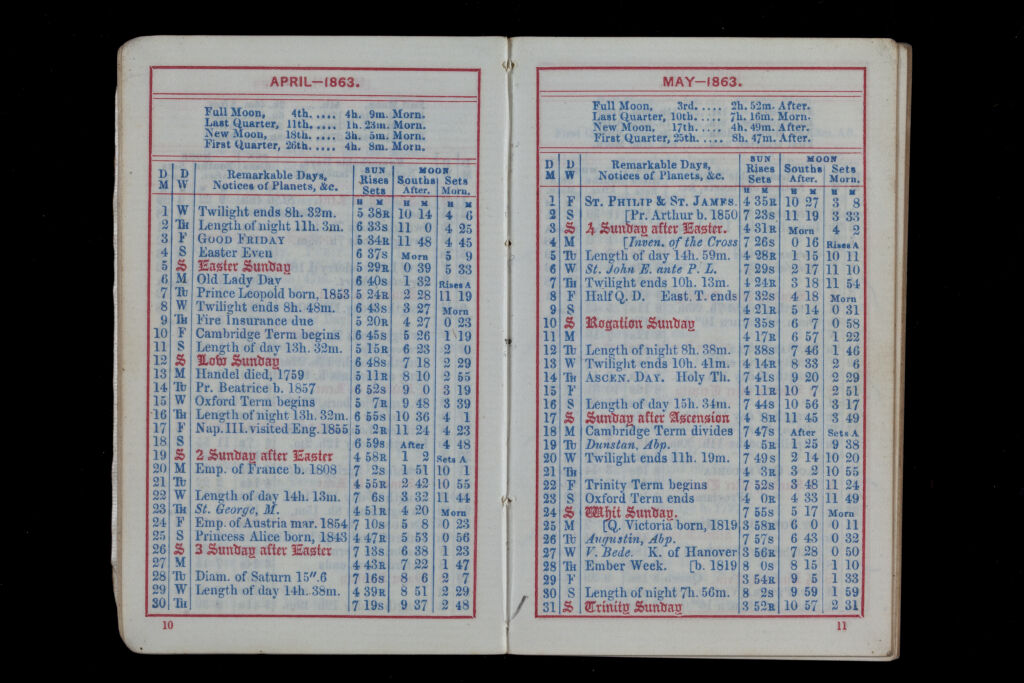 APRIL—1863.
Full Moon, 4th..... 4h. 9m. Morn.
Last Quarter, 11th..... 1h. 23m. Morn.
New Moon, 18th.... 3h. 5m. Morn.
First Quarter, 26th.... 4h. 8m. Morn.
D M D W Remarkable Days, Notices of Planets, &c. SUN Rises Sets MOON Souths After. Sets Morn.
H M H M H M
1 W Twilight ends 8h. 32m. 5 38R 10 14 4 6
2 TH Length of night 11h. 3m. 6 33S 11 0 4 25
3 F GOOD FRIDAY 5 34R 11 48 4 45
4 S Easter Even 6 37S Morn 5 9
5 S Easter Sunday 5 29R 0 39 5 33
6 M Old Lady Day 6 40S 1 32 Rises A
7 TU Prince Leopold born, 1853 5 24R 2 28 11 19
8 W Twilight ends 8h. 48m. 6 43S 3 27 Morn
9 TH Fire Insurance due 5 20R 4 27 0 23
10 F Cambridge Term begins 6 45S 5 26 1 19
11 S Length of day 13h. 32m. 5 15R 6 23 2 0
12 S Low Sunday 6 48S 7 18 2 29
13 M Handel died, 1759 5 11R 8 10 2 55
14 TU Pr. Beatrice b. 1857 6 52S 9 0 3 19
15 W Oxford Term begins 5 7R 9 48 3 39
16 TH Length of night 13h. 32m. 6 55S 10 36 4 1
17 F Nap. III. visited Eng. 1855 5 2R 11 24 4 23
18 S 6 59S After 4 48
19 S 2 Sunday after Easter 4 58R 1 2 Sets A
20 M Emp. of France b. 1808 7 2S 1 51 10 1
21 TU 4 55R 2 42 10 55
22 W Length of day 14h. 13m. 7 6S 3 32 11 44
23 TH St. George, M. 4 51R 4 20 Morn
24 F Emp. of Austria mar. 1854 7 10S 5 8 0 23
25 S Princess Alice born, 1843 4 47R 5 53 0 56
26 S 3 Sunday after Easter 7 13S 6 38 1 23
27 M 4 43R 7 22 1 47
28 TU Diam. of Saturn 15".6 7 16S 8 6 2 7
29 W Length of day 14h. 38m. 4 39R 8 51 2 29
30 TH 7 19S 9 37 2 48
10
MAY—1863.
Full Moon, 3rd..... 2h. 52m. After.
Last Quarter, 10th.... 7h. 16m. Morn.
New Moon, 17th.... 4h. 49m. After.
First Quarter, 25th.... 8h. 47m. After.
D M D W Remarkable Days, Notices of Planets, &c. SUN Rises Sets MOON Souths After. Sets Morn.
H M H M H M
1 F ST. PHILIP & ST. JAMES. 4 35R 10 27 3 8
2 S [Pr. Arthur b. 1850 7 23S 11 19 3 33
3 S 4 Sunday after Easter. 4 31R Morn 4 2
4 M [Inven. of the Cross 7 26S 0 16 Rises A
5 TU Length of day 14h. 59m. 4 28R 1 15 10 11
6 W St. John E. ante P. L. 7 29S 2 17 11 10
7 TH Twilight ends 10h. 13m. 4 24R 3 18 11 54
8 F Half Q. D. East. T. ends 7 32S 4 18 Morn
9 S 4 21R 5 14 0 31
10 S Rogation Sunday 7 35S 6 7 0 58
11 M 4 17R 6 57 1 22
12 TU Length of night 8h. 38m. 7 38S 7 46 1 46
13 W Twilight ends 10h. 41m. 4 14R 8 33 2 6
14 TH ASCEN. DAY. Holy Th. 7 41S 9 20 2 29
15 F 4 11R 10 7 2 51
16 S Length of day 15h. 34m. 7 44S 10 56 3 17
17 S Sunday after Ascension 4 8R 11 45 3 49
18 M Cambridge Term divides 7 47S After Sets A
19 TU Dunstan, Abp. 4 5R 1 25 9 38
20 W Twilight ends 11h. 19m. 7 49S 2 14 10 20
21 TH 4 3R 3 2 10 55
22 F Trinity Term begins 7 52S 3 48 11 24
23 S Oxford Term ends 4 0R 4 33 11 49
24 S Whit Sunday. 7 55S 5 17 Morn
25 M [Q. Victoria born, 1819 3 58R 6 0 0 11
26 TU Augustin, Abp. 7 57S 6 43 0 32
27 W V. Bede. K. of Hanover 3 56R 7 28 0 50
28 TH Ember Week. [b. 1819 8 0S 8 15 1 10
29 F 3 54R 9 5 1 33
30 S Length of night 7h. 56m. 8 2S 9 59 1 59
31 S Trinity Sunday 3 52R 10 57 2 31
11